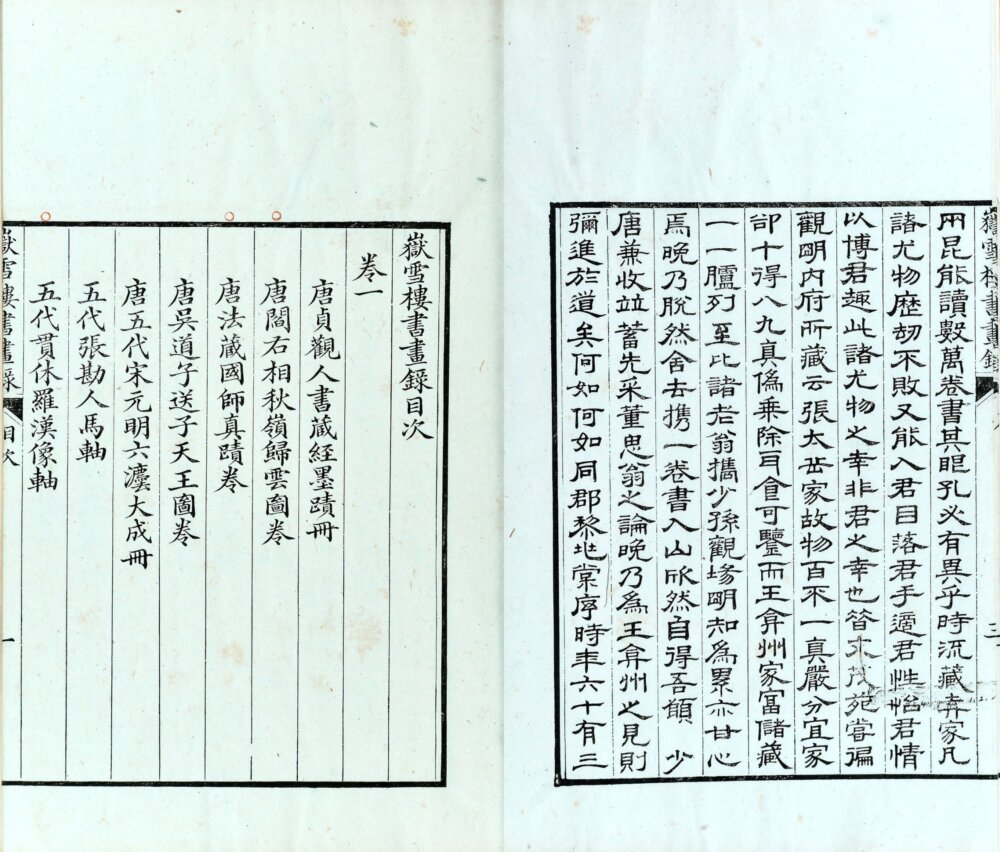 嶽雪樓書畫錄
三
兩昆能讀數萬卷書其眼孔必有異乎時流藏弆家凡
諸尤物歷刼不敗又能入君目落君手適君性怡君情
以博君趣此諸尤物之幸非君之幸也昔朱茂苑嘗徧
觀朙内府所藏云張太岳家故物百不一真嚴分宜家
卻十得八九真偽乘除可會可鑒而王弇州家富儲藏
一一臚列至比諸老翁攜少孫觀場朙知為累亦甘心
焉晚乃脫然舍去携一卷書入山欣然自得吾願少
唐兼收竝蓄先采董思翁之論晚乃為王弇州之見則
彌進於道矣何如何如同郡黎地棠序時年六十有三
嶽雪樓書畫錄目次
卷一
唐貞觀人書藏經墨蹟冊
唐閻右相秋嶺歸雲圖卷
唐法藏國師真蹟卷
唐吳道子送子天王圖卷
唐五代宋元明六瓊大成冊
五代張勘人馬軸
五代貫休羅漢像軸
嶽雪樓書畫錄
目次
一